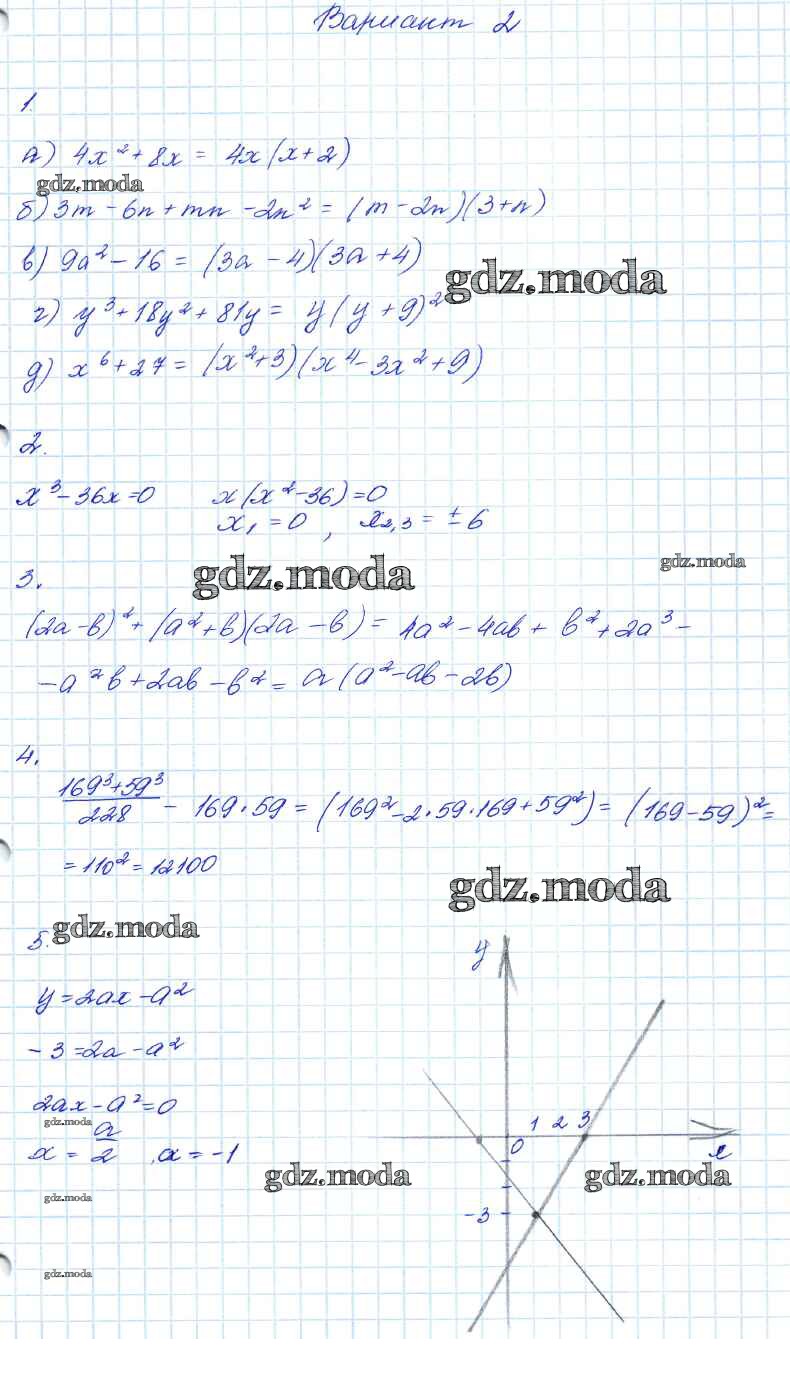 Вариант 2
1.
а) 4x² + 8x = 4x(x+2)
gdz.moda
б) 3m - 6n + mn - 2n² = (m - 2n)(3+n)
в) 9a² - 16 = (3a - 4)(3a + 4)
gdz.moda
г) y³ + 18y² + 81y = y(y + 9)²
д) x⁶ + 27 = (x² + 3)(x⁴ - 3x² + 9)
2.
x³ - 36x = 0 x(x² - 36) = 0
x₁ = 0, x₂,₃ = ± 6
gdz.moda
gdz.moda
3.
(2a - b)² + (a² + b)(2a - b) = 4a² - 4ab + b² + 2a³ -
- a²b + 2ab - b² = a(a² - ab - 2b)
4.
169³ + 59³
228
- 169 · 59 = (169² - 2 · 59 · 169 + 59²) = (169 - 59)² =
= 110² = 12100
gdz.moda
5.
gdz.moda
y
y = 2ax - a²
- 3 = 2a - a²
2ax - a² = 0
gdz.moda
x = a/2, a = -1
1 2 3
0
x
gdz.moda
gdz.moda
gdz.moda
-3
gdz.moda